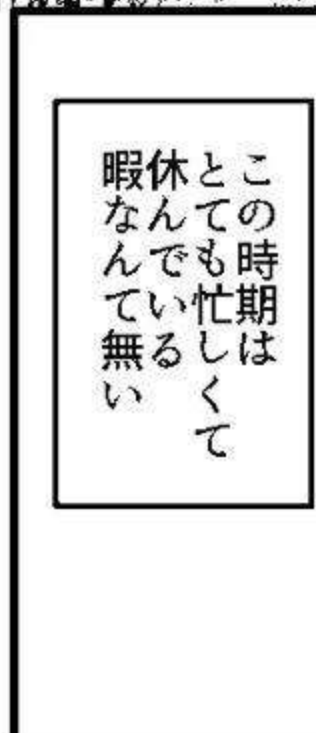 この時期は
とても忙しくて
休んでいる
暇なんて無い